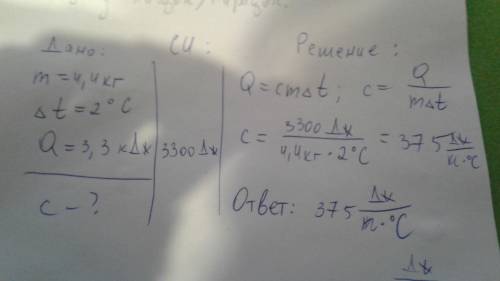 Дано:
m = 4,4 кг
Δt = 2°C
Q = 3,3 кДж
c - ?
СИ:
3300 Дж
Решение:
Q = cmΔt; c = Q / mΔt
c = 3300 Дж / 4,4 кг · 2°C = 375 Дж / кг · °C
Ответ: 375 Дж / кг · °C
Дж